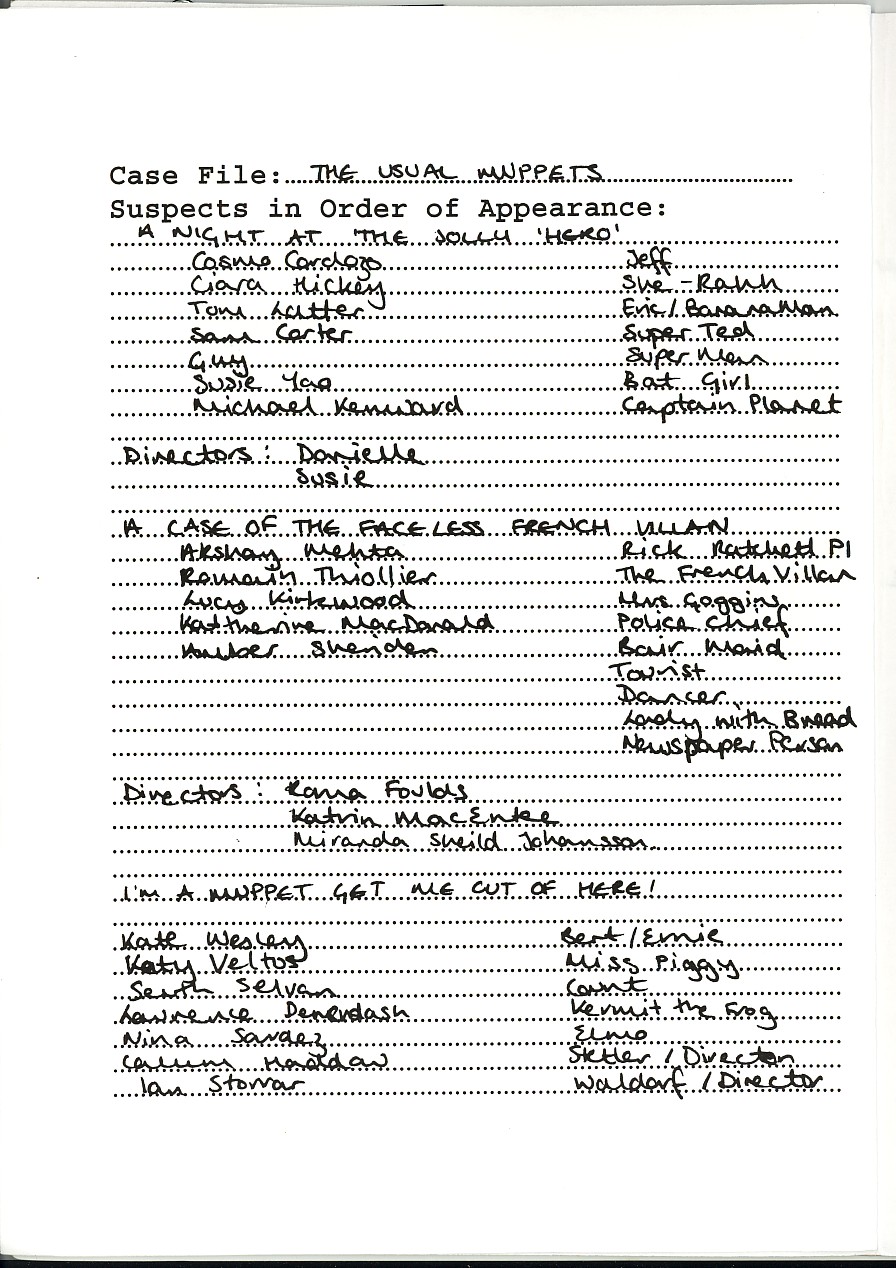 Case File: THE USUAL MUPPETS
Suspects in Order of Appearance:
A NIGHT AT 'THE JOLLY 'HERO'
Cosmo Cardozo Jeff
Ciara Hickey She-Rahh
Tom Latter Eric/BananaMan
Sam Carter Super Ted
Guy Super Man
Susie Yao Bat Girl
Michael Kenward Captain Planet
Directors: Danielle
Susie
A CASE OF THE FACELESS FRENCH VILLAN
Akshay Mehta Rick Ratchett PI
Romain Thiollier The French Villan
Lucy Kirkwood Mrs Goggins
Kattherine MacDonald Police Chief
Amber Sheriden Bair Maid
Tourist
Dancer
Lady with Bread
Newspaper Person
Directors: Rana Foulds
Katrin MacEntee
Miranda Sheild Johansson
I'M A MUPPET GET ME OUT OF HERE!
Kate Wesley Bert/Ernie
Katy Veltos Miss Piggy
Selvan Count
Lawrence Denerdash Kermit the Frog
Nina Sandez Elmo
Calum Statler/Director
Ian Storrar Waldorf/Director